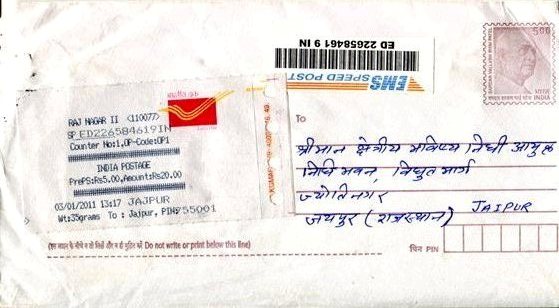 RAJ NAGAR II <110077>
SP ED226584619IN
Counter No:1,OP-Code:OP1
INDIA POSTAGE
PrePS:Rs5.00,Amount:Rs20.00
03/01/2011 13:17 JAIPUR
Wt:35grams To : Jaipur, PIN:
55001
ED 22658461 9 IN
EMS
SPEED POST
5.00
भारत
INDIA
To
श्रीमान क्षेत्रीय भविष्य निधी आयुक्त
निधि भवन, विधुत मार्ग
ज्योतिनगर
जयपुर (राजस्थान) JAIPUR
Do not write or print below this line)
पिन PIN